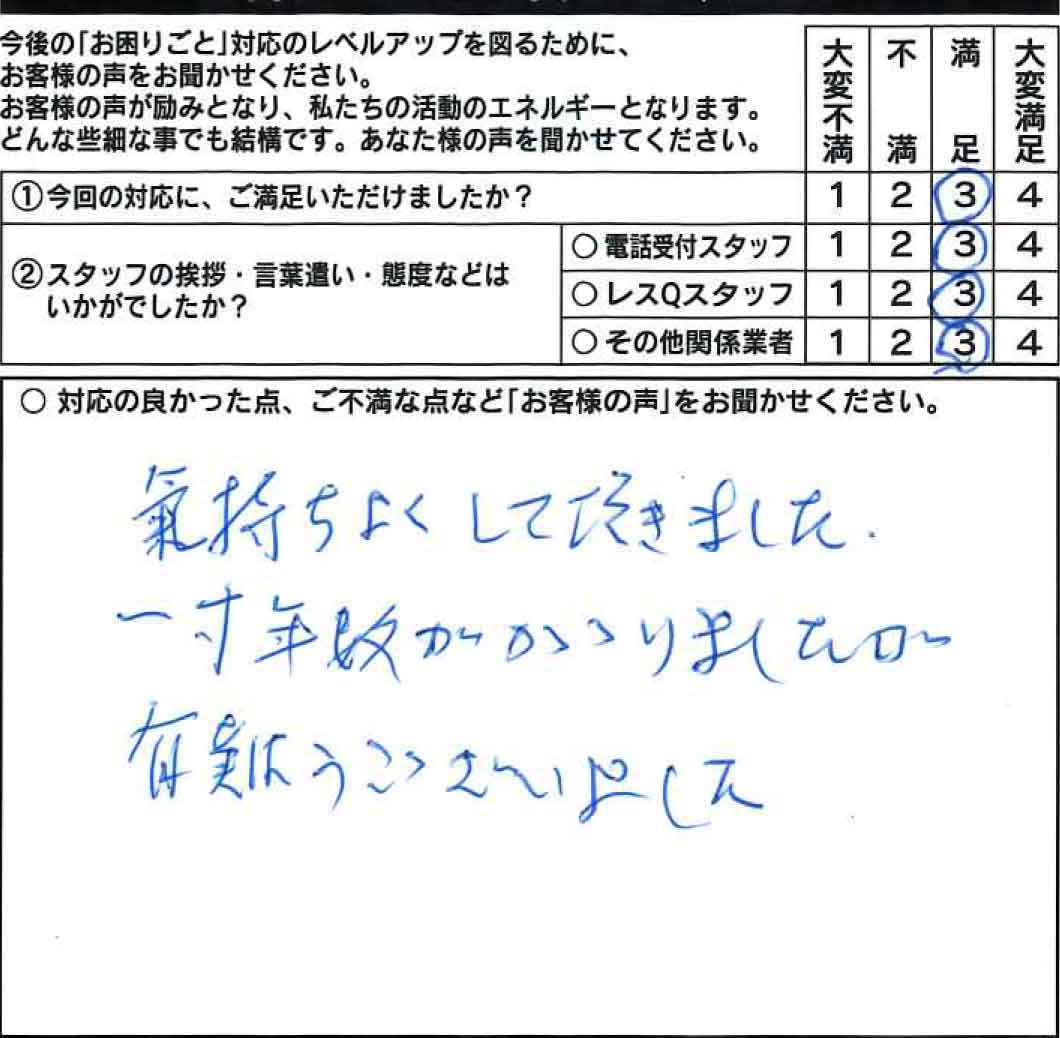 今後の「お困りごと」対応のレベルアップを図るために、
お客様の声をお聞かせください。
お客様の声が励みとなり、私たちの活動のエネルギーとなります。
どんな些細な事でも結構です。あなた様の声を聞かせてください。
大変不満 不満 満足 大変満足
①今回の対応に、ご満足いただけましたか？ 1 2 3 4
②スタッフの挨拶・言葉遣い・態度などは
いかがでしたか？
○電話受付スタッフ 1 2 3 4
○レスQスタッフ 1 2 3 4
○その他関係業者 1 2 3 4
○ 対応の良かった点、ご不満な点など「お客様の声」をお聞かせください。
氣持ちよくして頂きました.
一寸年数がかゝりましたが
有難うございました